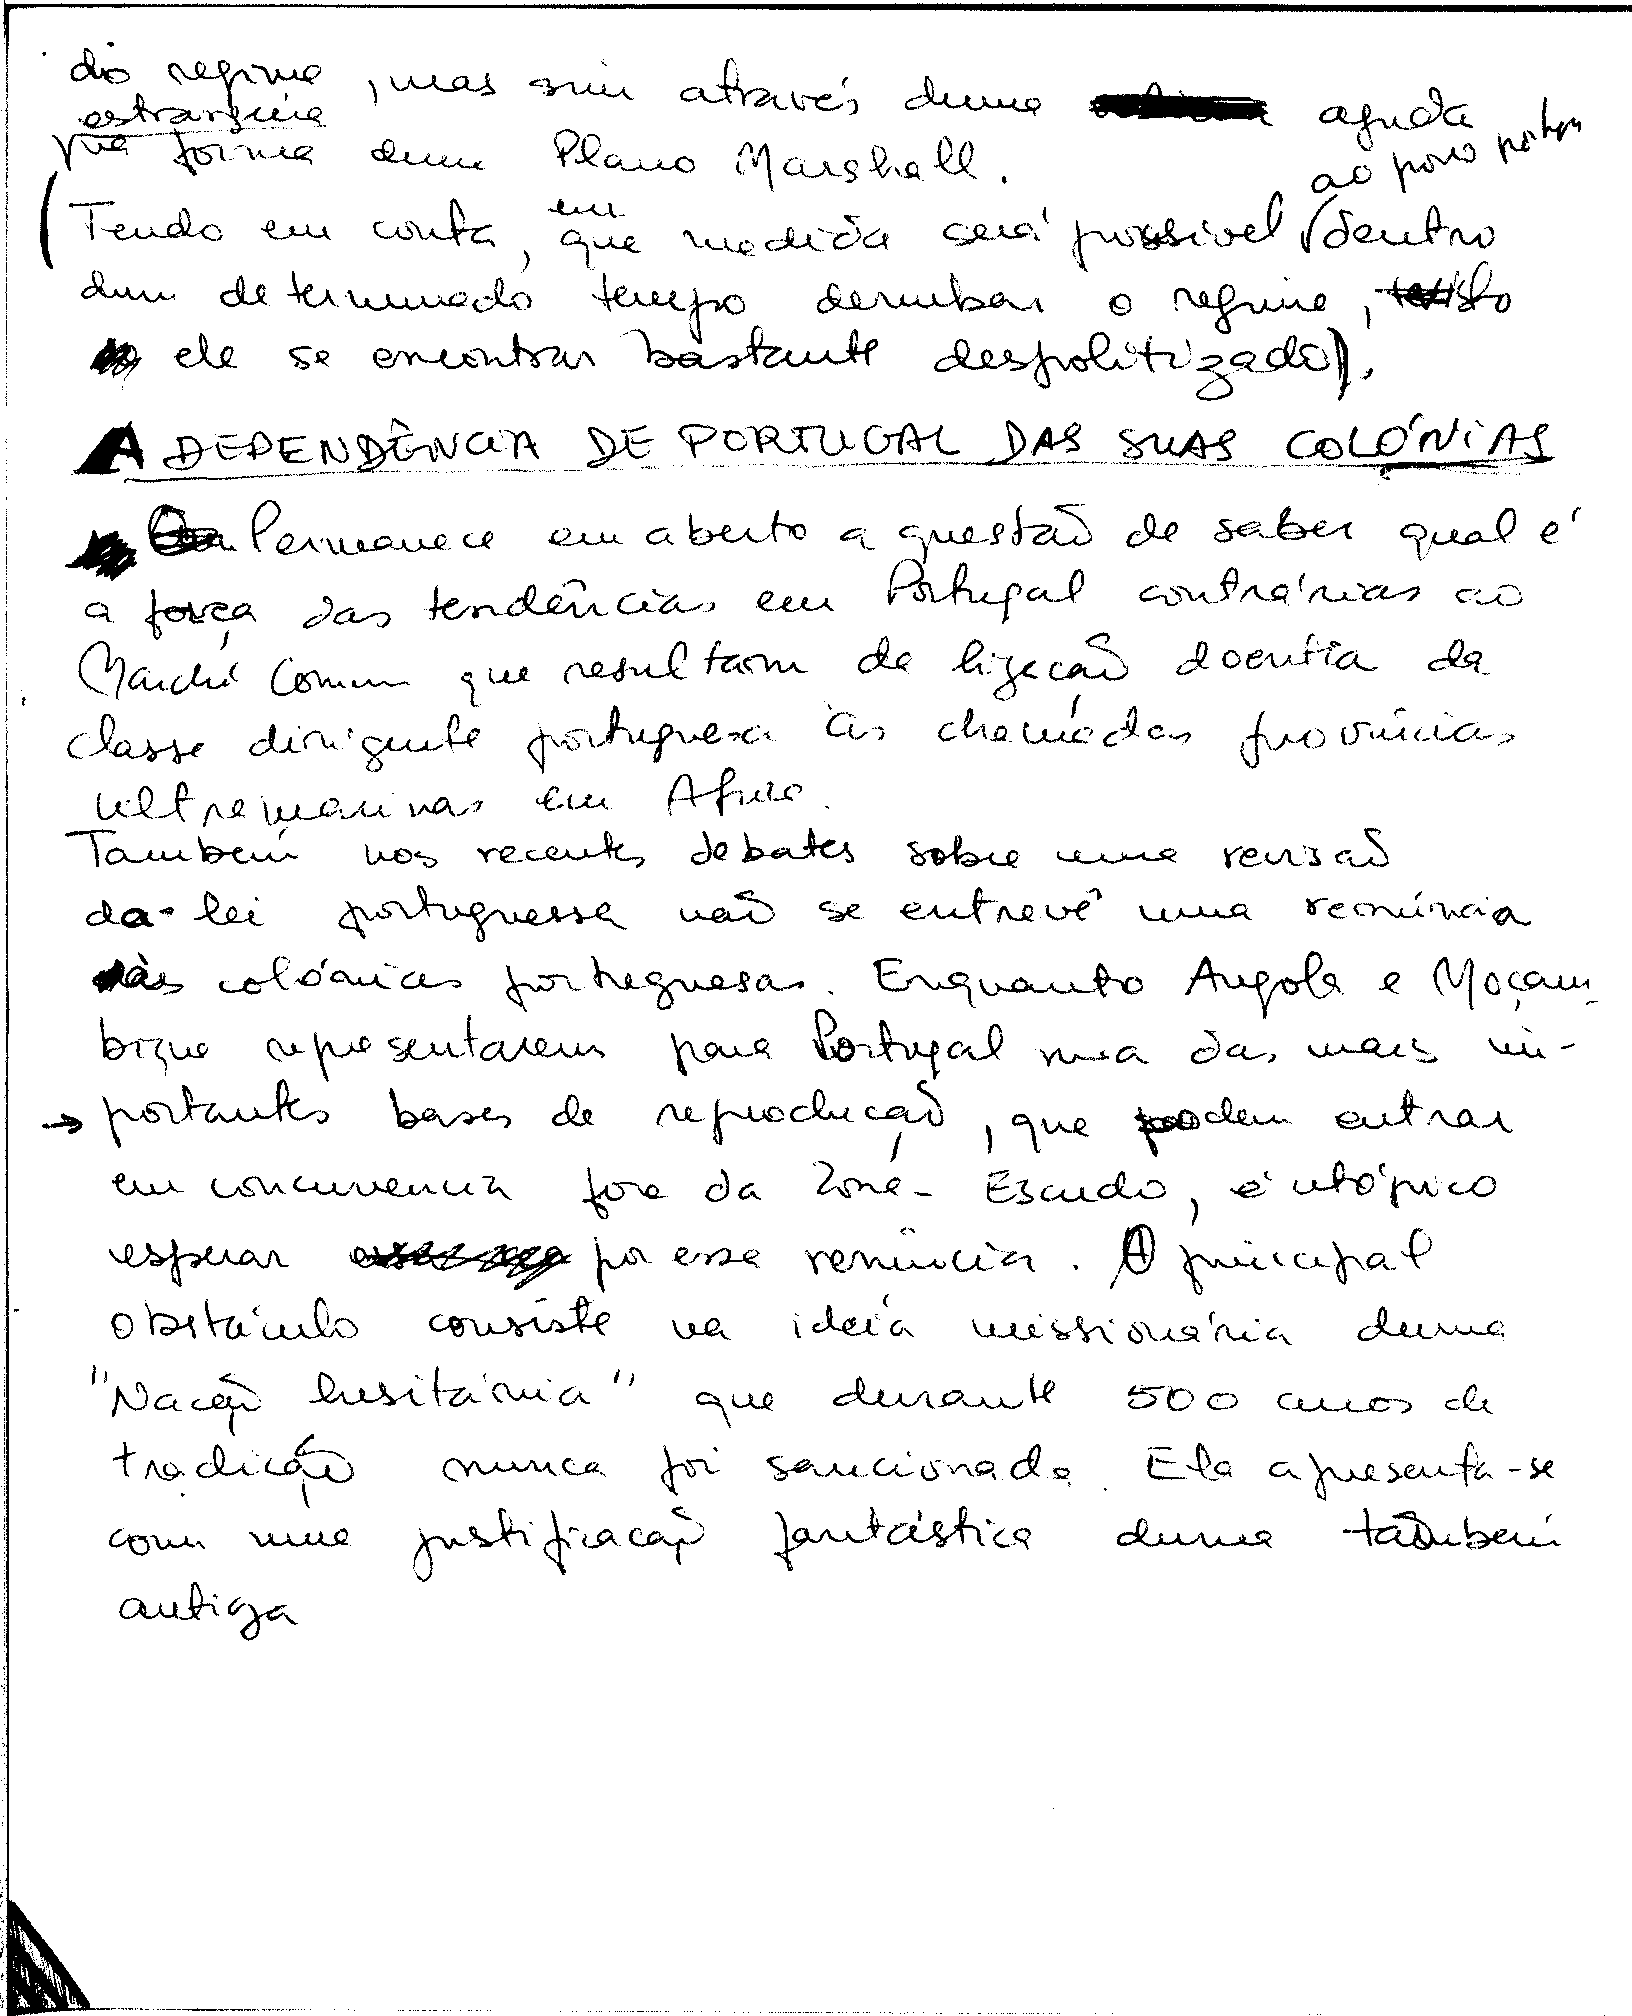 do regime, mas sim através duma ajuda
estrangeira
na forma dum Plano Marshall.
ao povo portug
(Tendo em conta, em que medida será possível (dentro
dum determinado tempo derrubar o regime,
ele se encontrar bastante despolitizado).
A DEPENDÊNCIA DE PORTUGAL DAS SUAS COLÓNIAS
Permanece em aberto a questão de saber qual é
a força das tendências em Portugal contrárias ao
Marché Comun que resultam da ligação doentia da
classe dirigente portuguesa às chamadas províncias
ultramarinas em Africa.
Também nos recentes debates sobre uma revisão
da lei portuguessa não se entrevê uma renúncia
às colónias portuguesas. Enquanto Angola e Moçam-
bique representarem para Portugal uma das mais im-
→ portantes bases de reprodução, que podem entrar
em concurrencia fora da Zona-Escudo, é utópico
esperar por essa renúncia. O principal
obstáculo consiste na ideia missionária duma
"Nação lusitánia" que durante 500 anos de
tradição nunca foi sancionada. Ela apresenta-se
com uma justificação fantástica duma também
antiga